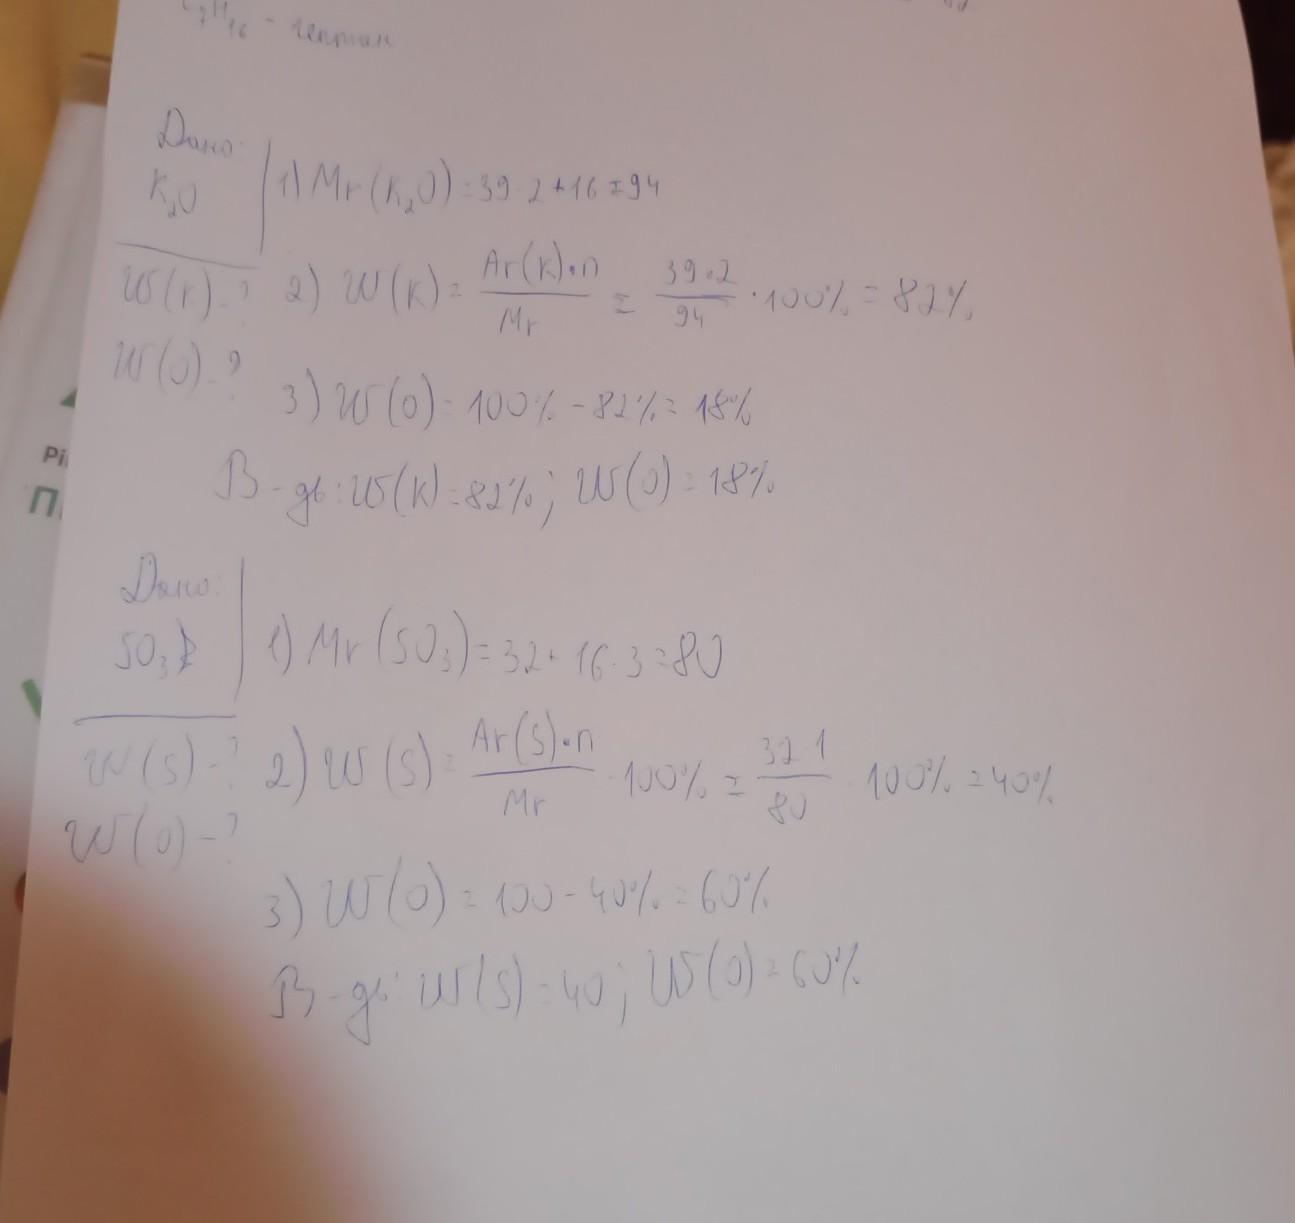 C₇H₁₆ - гептан
Дано:
K₂O
1) Mr(K₂O) = 39·2+16 = 94
W(K) - ?
2) W(K) = Ar(K)·n / Mr = 39·2 / 94 · 100% = 82%
W(O) - ?
3) W(O) = 100% - 82% = 18%
В-дь: W(K) = 82%; W(O) = 18%
Дано:
SO₃
1) Mr(SO₃) = 32+16·3 = 80
W(S) - ?
2) W(S) = Ar(S)·n / Mr · 100% = 32·1 / 80 · 100% = 40%
W(O) - ?
3) W(O) = 100 - 40% = 60%
В-дь: W(S) = 40; W(O) = 60%